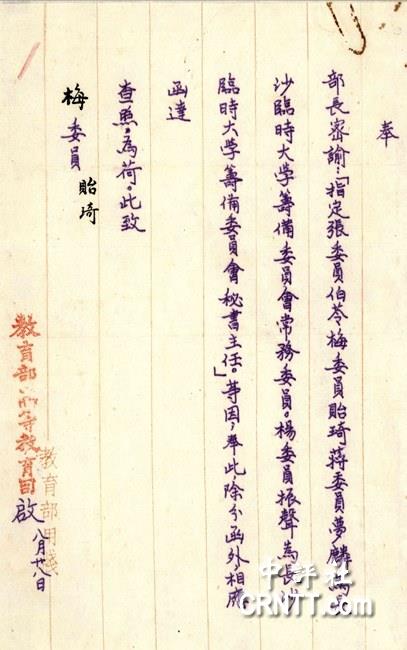 奉
部長密諭：「指定張委員伯苓梅委員貽琦蔣委員夢麟為長
沙臨時大學籌備委員會常務委員。楊委員振聲為長沙
臨時大学籌備委員會秘書主任。」等因，奉此，除分函外，相應
函達
查照，為荷。此致
梅委員貽琦
教育部高等教育司啟
八月廿八日
教育部用箋
中評社
CRNTT.com